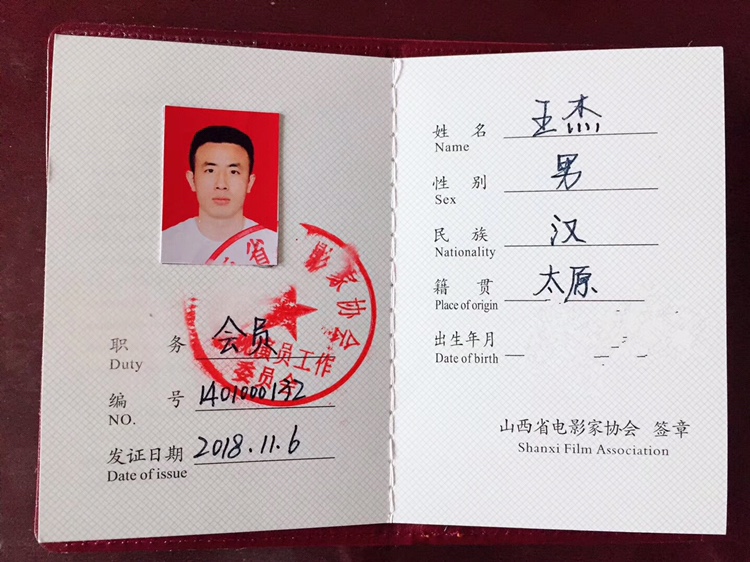 职 务 会员
Duty
编 号 1401000132
NO.
发证日期 2018.11.6
Date of issue
省 影家协会
演员工作
委员会
姓 名 王杰
Name
性 别 男
Sex
民 族 汉
Nationality
籍 贯 太原
Place of origin
出生年月
Date of birth
山西省电影家协会 签章
Shanxi Film Association